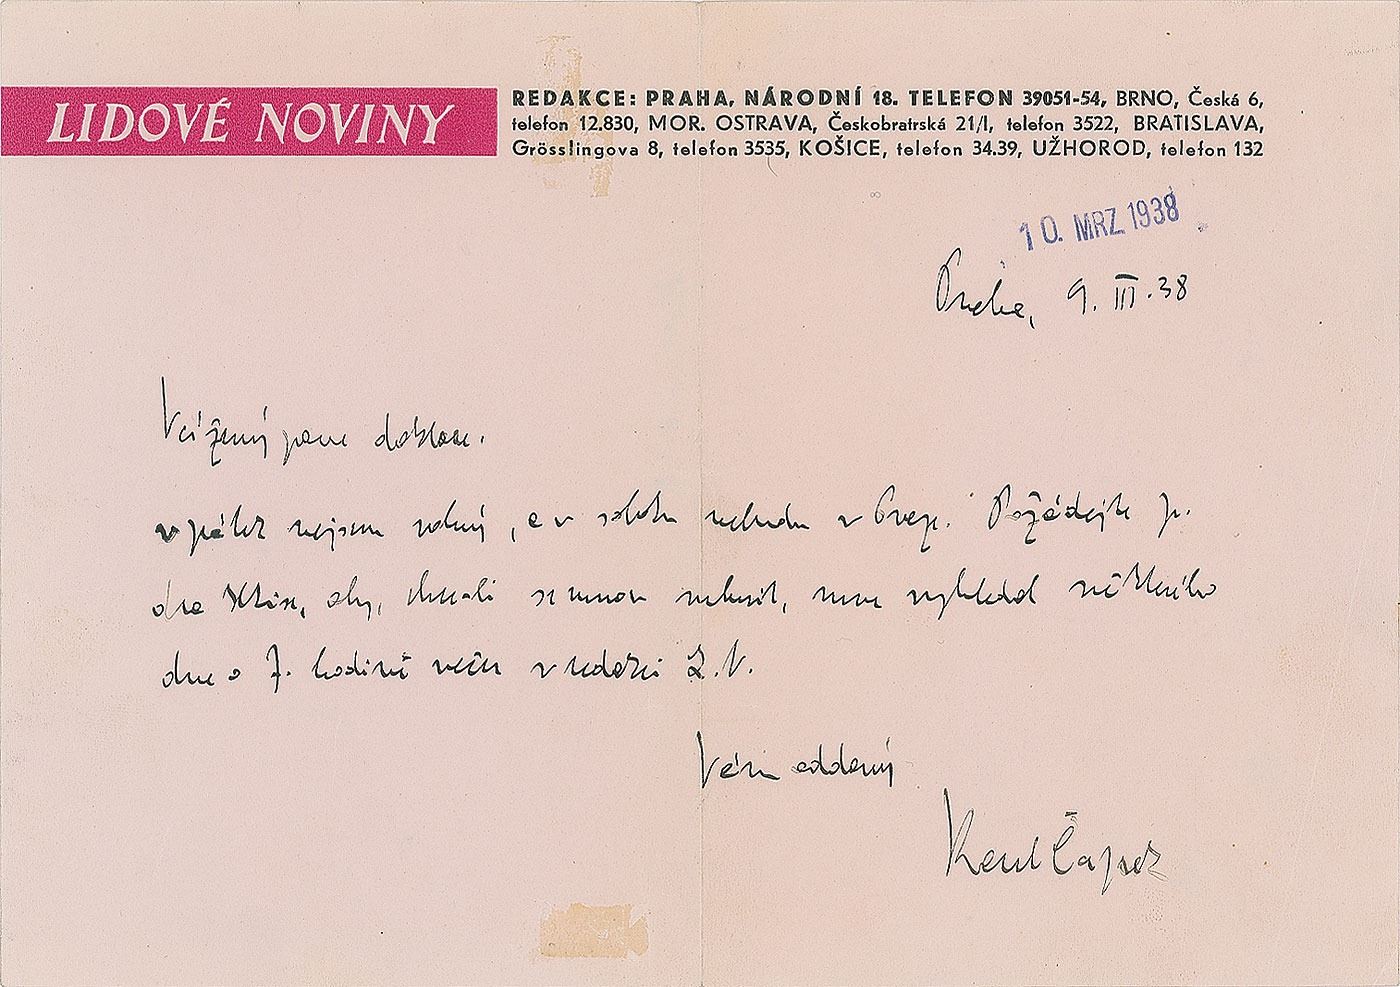 LIDOVÉ NOVINY
REDAKCE: PRAHA, NÁRODNÍ 18. TELEFON 39051-54, BRNO, Česká 6,
telefon 12.830, MOR. OSTRAVA, Českobratrská 21/I, telefon 3522, BRATISLAVA,
Grösslingova 8, telefon 3535, KOŠICE, telefon 34.39, UŽHOROD, telefon 132
10. MRZ 1938
Praha, 9. III. 38
Vážený pane doktore.
v pátek nejsem volný, a v sobotu nebudu v Praze. Požádejte p.
dra aby, chce-li se mnou mluvit, mne vyhledal některého
dne o 7. hodině večer v redakci L. N.
Vám oddaný
Karel Čapek